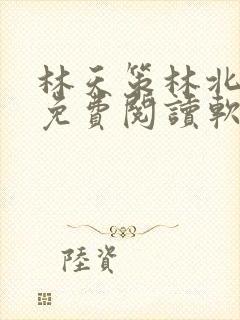 林天策林北
免費閱讀軟
陸資